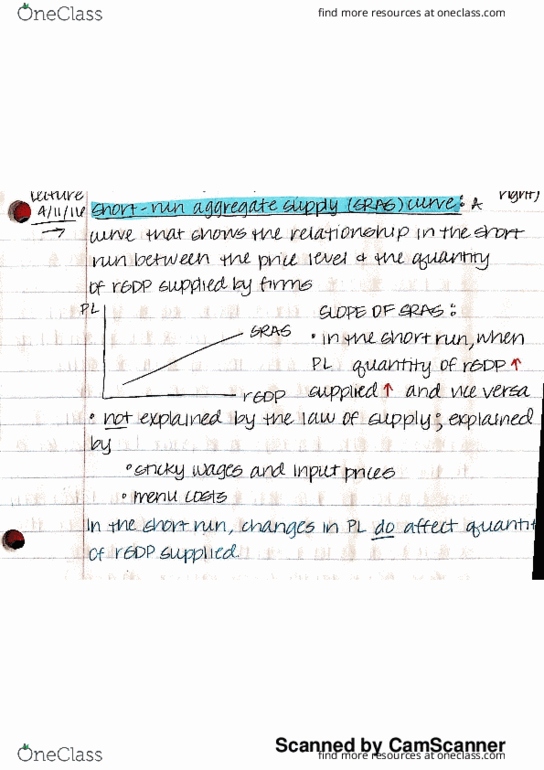 OneClass
find more resources at oneclass.com
Lecture
right)
4/11/16
short-run aggregate supply (SRAS) curve: A
curve that shows the relationship in the short
run between the price level & the quantity
of rGDP supplied by firms
PL
SLOPE OF SRAS:
SRAS
• in the short run, when
PL quantity of rGDP ↑
rGDP
supplied ↑ and vice versa
• not explained by the law of supply; explained
by
• sticky wages and input prices
• menu costs
In the short run, changes in PL do affect quantit
of rGDP supplied.
Scanned by CamScanner
OneClass
find more resources at oneclass.com